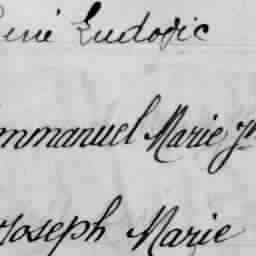 ené Ludovic
mmanuel Marie J
Joseph Marie